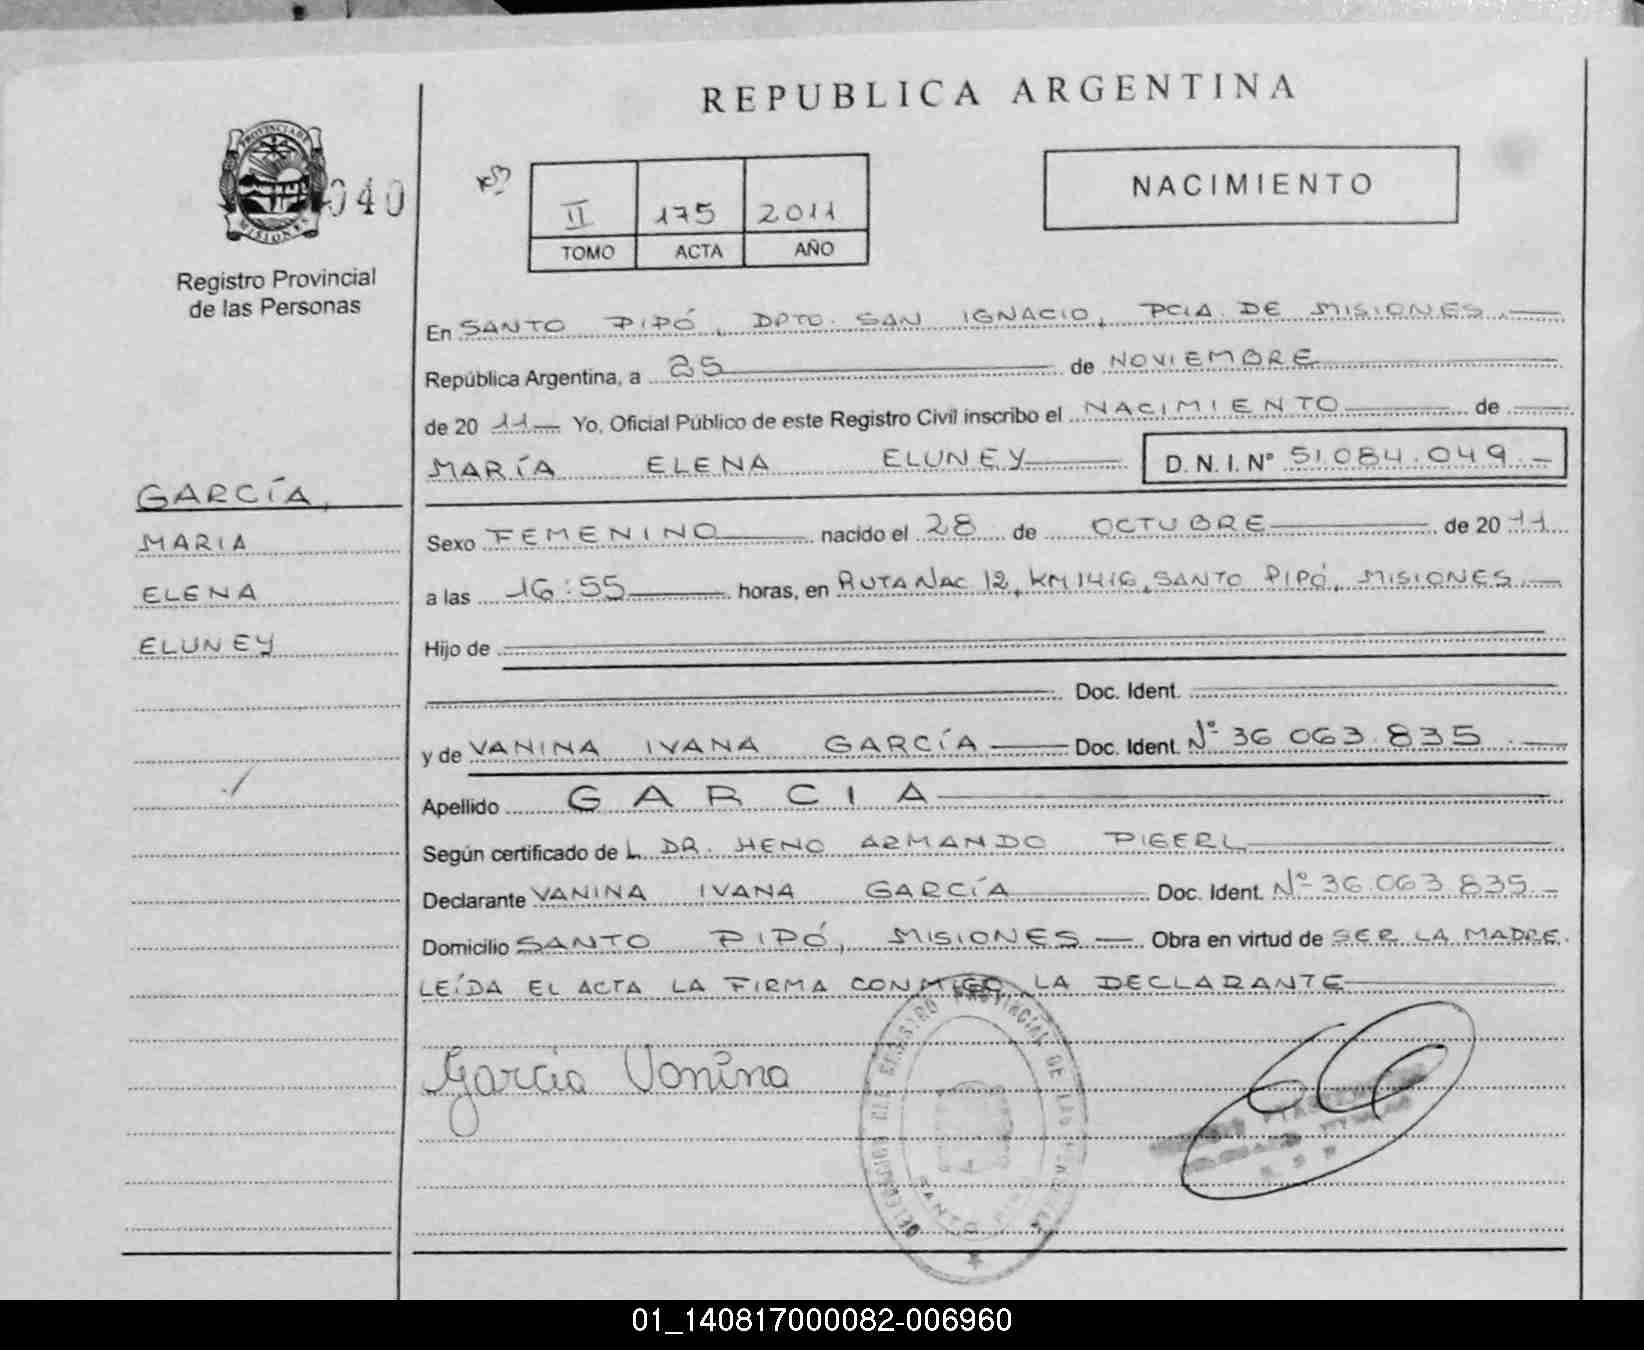 REPUBLICA ARGENTINA
PROVINCIA DE MISIONES
040
Registro Provincial
de las Personas
II 175 2011
TOMO ACTA AÑO
NACIMIENTO
En SANTO PIPÓ, DPTO. SAN IGNACIO, PCIA. DE MISIONES.
República Argentina, a 25 de NOVIEMBRE
de 2011 Yo, Oficial Público de este Registro Civil inscribo el NACIMIENTO de
MARÍA ELENA ELUNEY D.N.I.Nº 51.084.049.-
GARCÍA,
MARIA
ELENA
ELUNEY
Sexo FEMENINO nacido el 28 de OCTUBRE de 2011
a las 16:55 horas, en RUTA NAC. 12, KM 1416, SANTO PIPÓ, MISIONES.-
Hijo de
Doc. Ident.
y de VANINA IVANA GARCÍA Doc. Ident. Nº 36.063.835.-
Apellido GARCIA
Según certificado de L DR. HENO ARMANDO PIGERL
Declarante VANINA IVANA GARCÍA Doc. Ident. Nº 36.063.835.-
Domicilio SANTO PIPÓ, MISIONES Obra en virtud de SER LA MADRE.
LEÍDA EL ACTA LA FIRMA CONMIGO LA DECLARANTE
García Vanina
DELEGACION DEL REGISTRO PROVINCIAL DE LAS PERSONAS
SANTO PIPO
01_140817000082-006960